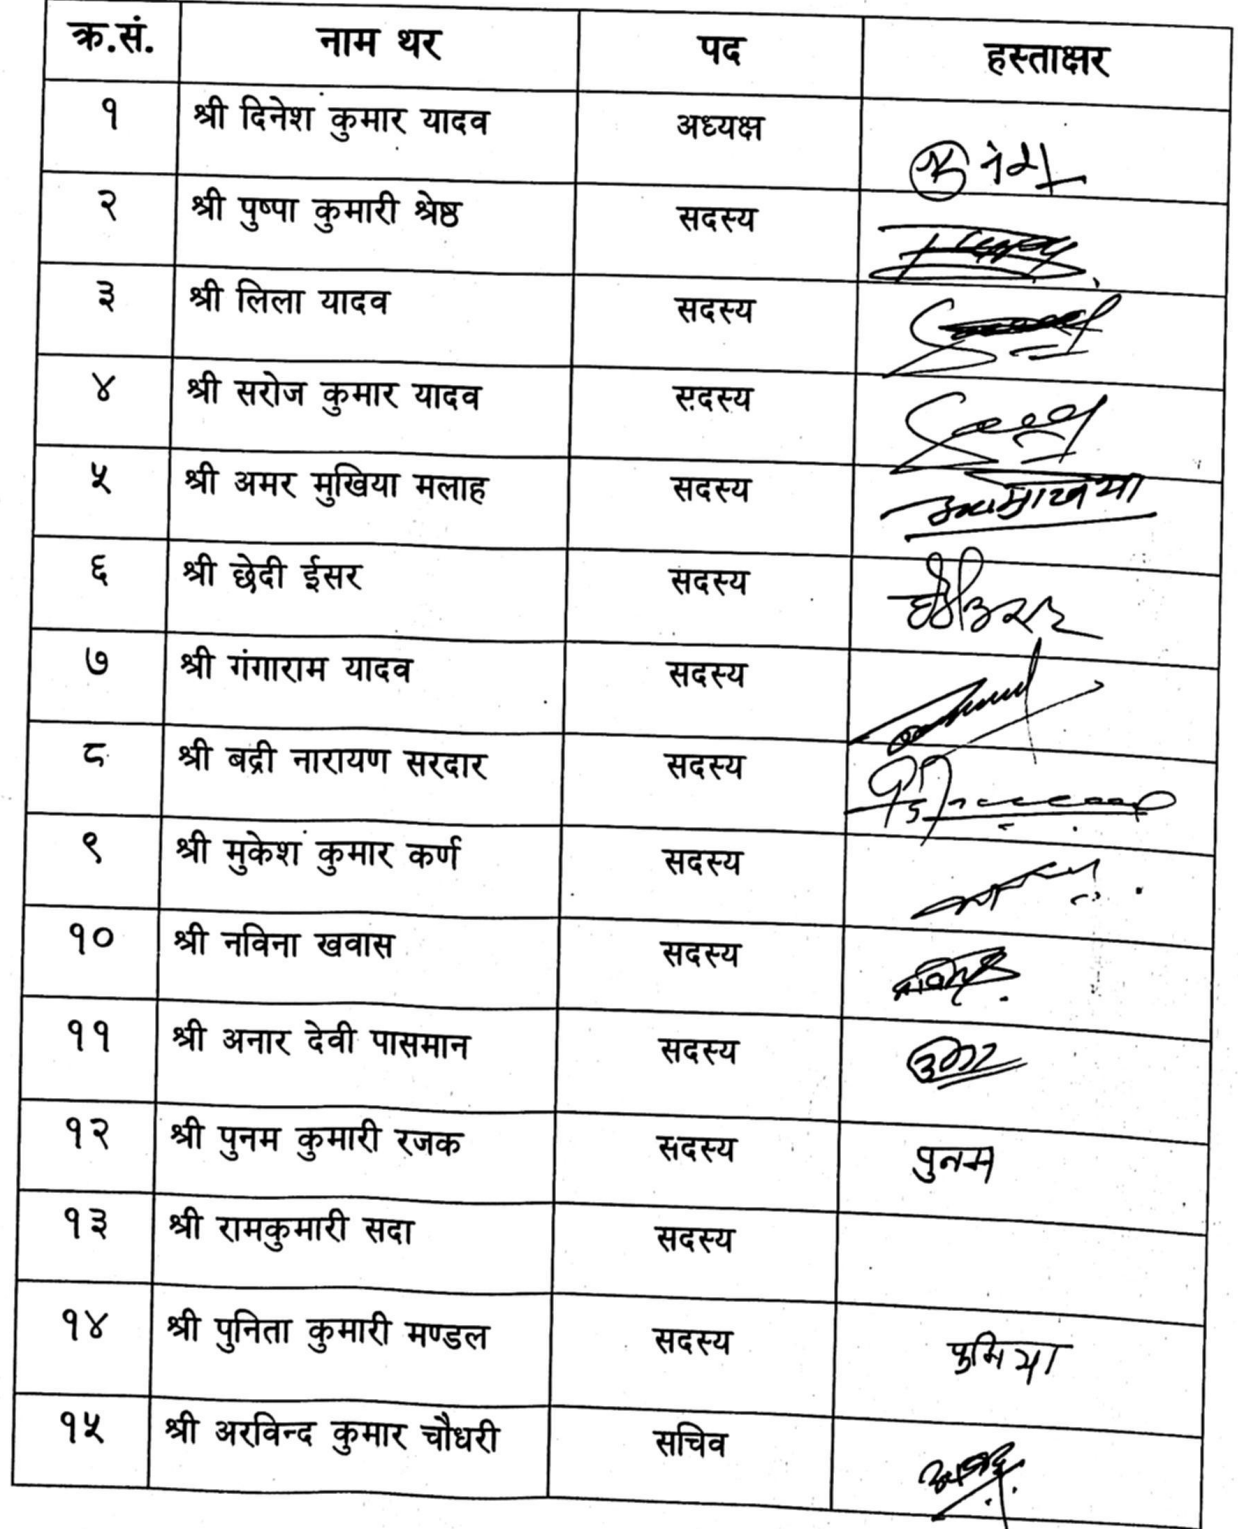 क्र.सं. नाम थर पद हस्ताक्षर
१ श्री दिनेश कुमार यादव अध्यक्ष
२ श्री पुष्पा कुमारी श्रेष्ठ सदस्य
३ श्री लिला यादव सदस्य
४ श्री सरोज कुमार यादव सदस्य
५ श्री अमर मुखिया मलाह सदस्य
६ श्री छेदी ईसर सदस्य
७ श्री गंगाराम यादव सदस्य
८ श्री बद्री नारायण सरदार सदस्य
९ श्री मुकेश कुमार कर्ण सदस्य
१० श्री नविना खवास सदस्य
११ श्री अनार देवी पासमान सदस्य
१२ श्री पुनम कुमारी रजक सदस्य पुनम
१३ श्री रामकुमारी सदा सदस्य
१४ श्री पुनिता कुमारी मण्डल सदस्य
१५ श्री अरविन्द कुमार चौधरी सचिव